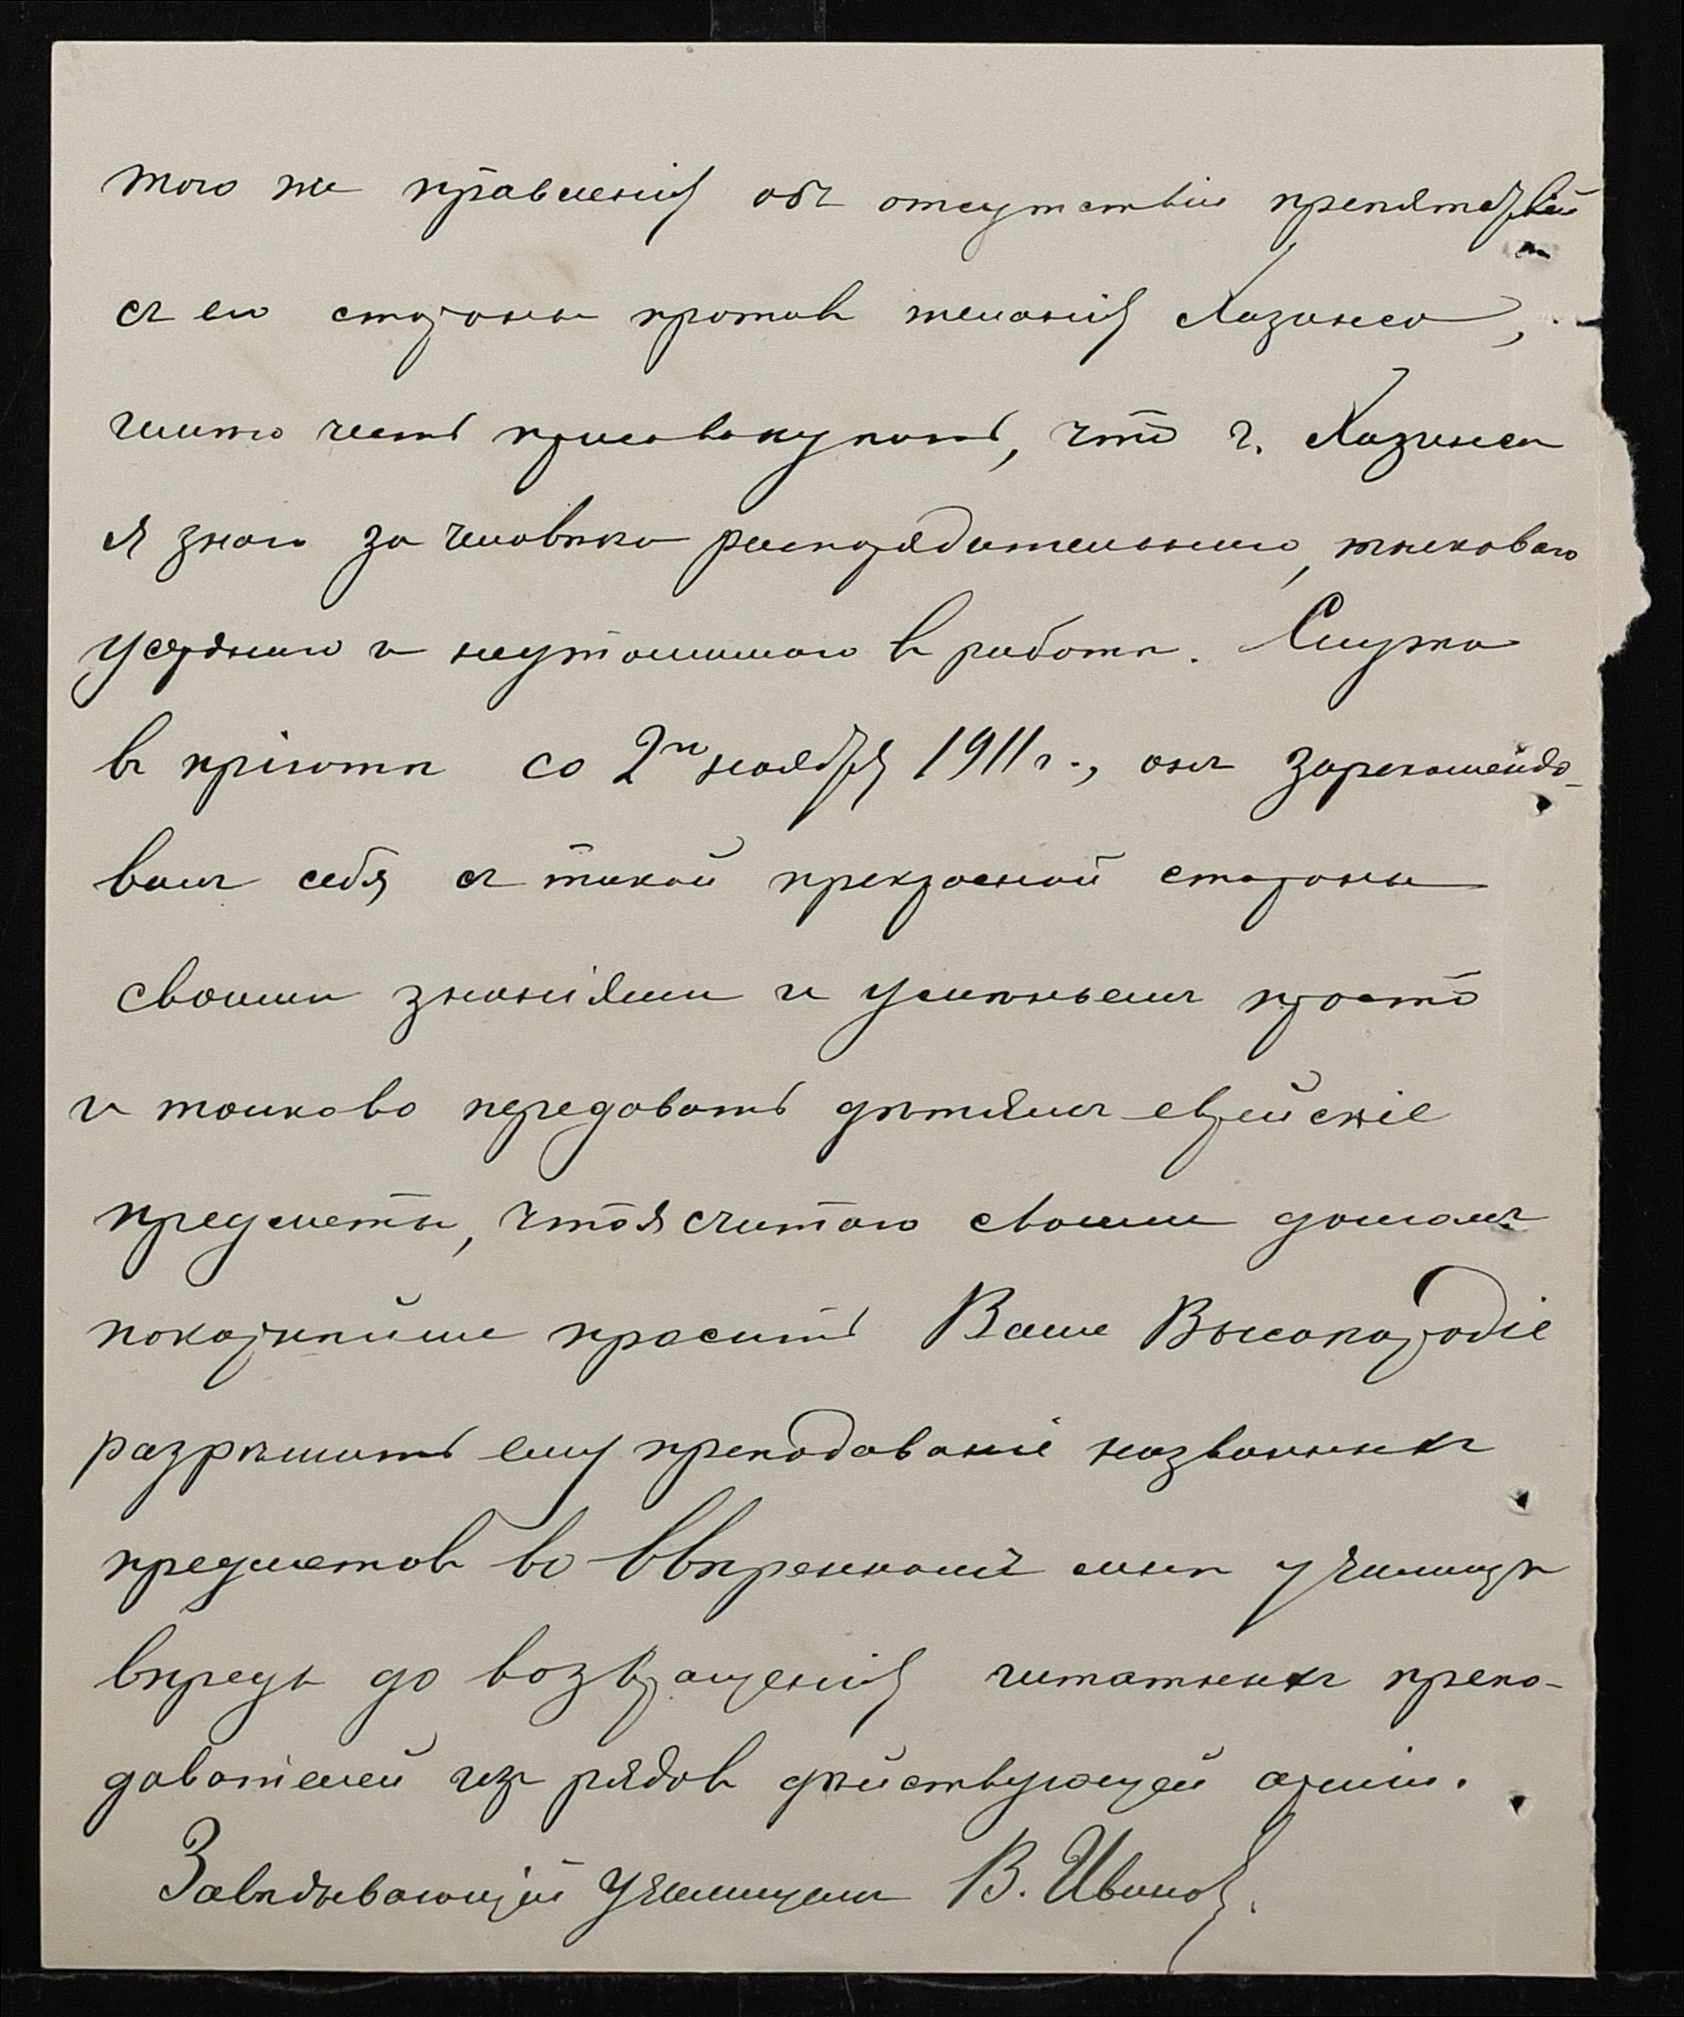 того же правленія объ отсутствіи препятствій
съ его стороны противъ желанія Хазинса,
имѣю честь присовокупить, что г. Хазинса
я знаю за человѣка распорядительнаго, толковаго
усерднаго и неутомимаго въ работѣ. Служа
въ пріютѣ со 2го ноября 1911 г., онъ зарекомендо-
валъ себя съ такой прекрасной стороны
своими знаніями и умѣньемъ просто
и толково передавать дѣтямъ еврейскіе
предметы, что я считаю своимъ долгомъ
покорнѣйше просить Ваше Высокородіе
разрѣшить ему преподаваніе названныхъ
предметовъ во ввѣренномъ мнѣ училищѣ
впредь до возвращенія штатныхъ препо-
давателей изъ рядовъ дѣйствующей арміи.
Завѣдывающій училищемъ В. Ивановъ.